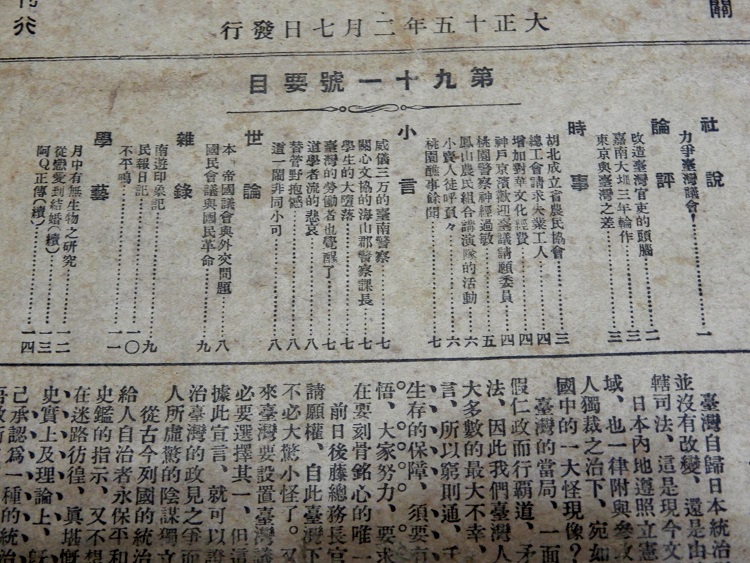 關
大正十五年二月七日發行
第九十一號要目
社說
力爭臺灣議會！……一
論評
改造臺灣官吏的頭腦……二
嘉南大圳三年輪作……三
東京與臺灣之差……三
時事
湖北成立省農民協會……三
總工會請求失業工人……四
增加對華文化經費……四
神戶京濱歡迎臺議請願委員……四
桃園警察神經過敏……五
鳳山農民組合講演隊的活動……六
小賣人徒呼負々……六
桃園醜事餘聞……七
小言
威儀三万的臺南警察……七
關心文協的海山郡警察課長……七
學生的大墮落……七
臺灣的勞働者也覺醒了……七
道學者流的悲哀……八
替菅野抱憾……八
道一聞非同小可……八
世論
本 帝國議會與外交問題……八
國民會議與國民革命……九
雜錄
南遊印象記……九
民報日記……一〇
不平鳴……一一
學藝
月中有無生物之研究……一二
從戀愛到結婚（續）……一三
阿Q正傳（續）……一四
臺灣自歸日本統治
並沒有改變、還是由
轄司法、這是現今文
日本內地遵照立憲
域、也一律附與參政
人獨裁之治下、宛如
國中的一大怪現像？
臺灣的當局、一面
假仁政而行霸道、矛
法、因此我們臺灣人
大多數的最大不幸、
言、所以窮則通、
生存的保障、須要
悟、大家努力、要求
在要刻骨銘心的唯一
前日後藤總務長官
請願權、自此臺灣下
不必大驚小怪了。又
來臺灣要設置臺灣議
必要選擇其一、但這
據此宣言、就可以證
治臺灣的政見之爭而
人所虛驚的陰謀獨立
從古今列國的統治
給人自治者永保平和
史鑑的指示、又不想
在迷路彷徨、眞堪慨
史實上及理論上、旣
己承認爲一種的統治